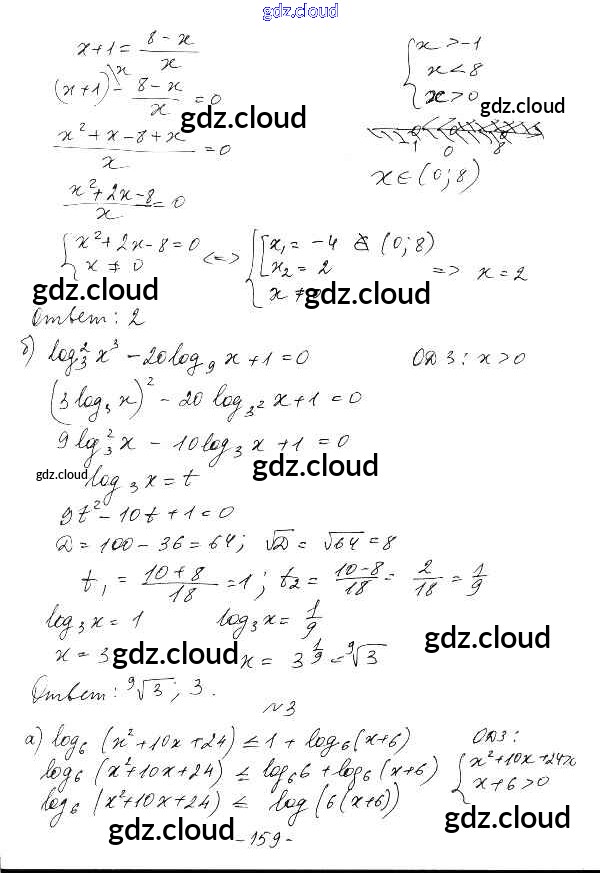 gdz.cloud
x+1 = (8-x)/x
{ x > -1
(x+1)\x - (8-x)/x = 0
x < 8
x > 0
gdz.cloud
gdz.cloud
(x²+x-8+x)/x = 0
-1 0 8
(x²+2x-8)/x = 0
x ∈ (0; 8)
{ x²+2x-8=0 <=> { [ x₁ = -4 ∉ (0; 8)
x ≠ 0 x₂ = 2 => x = 2
x ≠ 0
gdz.cloud gdz.cloud
Ответ: 2
б) log₃² x³ - 20 log₉ x + 1 = 0 ОДЗ: x > 0
(3 log₃ x)² - 20 log₃² x + 1 = 0
9 log₃² x - 10 log₃ x + 1 = 0
gdz.cloud log₃ x = t gdz.cloud
9t² - 10t + 1 = 0
D = 100 - 36 = 64; √D = √64 = 8
t₁ = (10+8)/18 = 1; t₂ = (10-8)/18 = 2/18 = 1/9
log₃ x = 1 log₃ x = 1/9
gdz.cloud
x = 3 gdz.cloud x = 3^(1/9) = ⁹√3
Ответ: ⁹√3; 3.
№3
а) log₆ (x²+10x+24) ≤ 1 + log₆ (x+6) ОДЗ:
log₆ (x²+10x+24) ≤ log₆ 6 + log₆ (x+6) { x²+10x+24>
x+6 > 0
log₆ (x²+10x+24) ≤ log (6(x+6))
gdz.cloud gdz.cloud
-159-